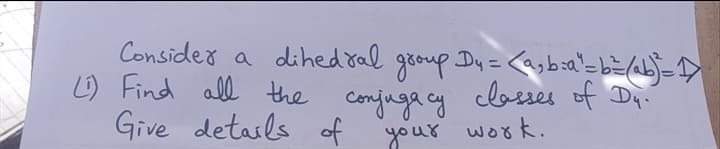 Consider a dihedral group D₄ = <a, b:a⁴=b²=(ab)²=1>
(i) Find all the conjugacy classes of D₄.
Give details of your work.